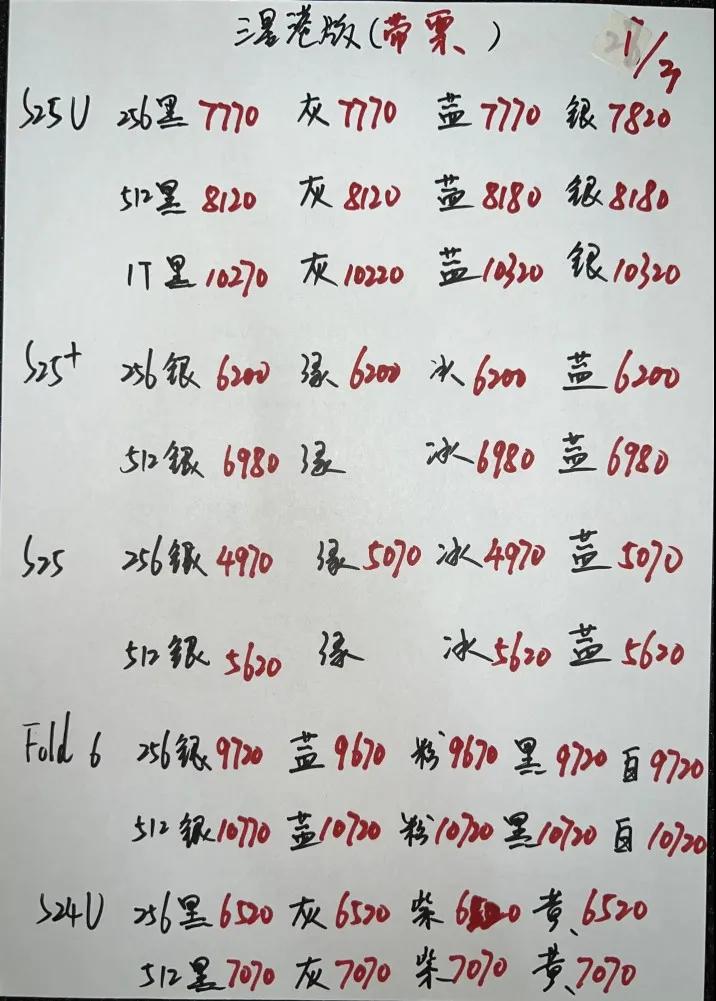 三星港版(带票) 1/3
S25U 256黑7770 灰7770 蓝7770 银7820
512黑8120 灰8120 蓝8180 银8180
1T黑10270 灰10220 蓝10320 银10320
S25+ 256银6200 绿6200 冰6200 蓝6200
512银6980 绿 冰6980 蓝6980
S25 256银4970 绿5070 冰4970 蓝5070
512银5620 绿 冰5620 蓝5620
Fold 6 256银9720 蓝9670 粉9670 黑9720 白9720
512银10770 蓝10720 粉10720 黑10720 白10720
S24U 256黑6520 灰6520 紫 黄6520
512黑7070 灰7070 紫7070 黄7070